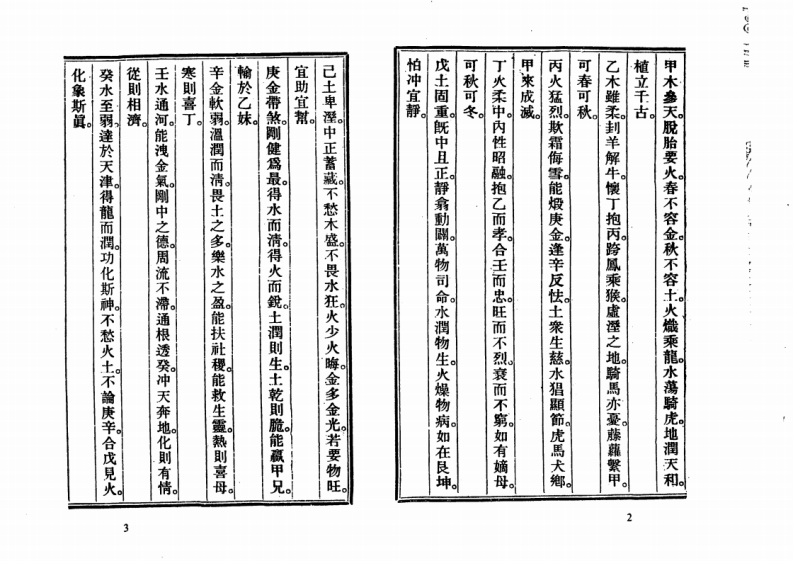 甲木參天。脫胎要火。春不容金。秋不容土。火熾乘龍。水蕩騎虎。地潤天和。
植立千古。
乙木雖柔。刲羊解牛。懷丁抱丙。跨鳳乘猴。虛溼之地。騎馬亦憂。藤蘿繫甲。
可春可秋。
丙火猛烈。欺霜侮雪。能煅庚金。逢辛反怯。土衆生慈。水猖顯節。虎馬犬鄉。
甲來成滅。
丁火柔中。內性昭融。抱乙而孝。合壬而忠。旺而不烈。衰而不窮。如有嫡母。
可秋可冬。
戊土固重。既中且正。靜翕動闢。萬物司命。水潤物生。火燥物病。如在艮坤。
怕冲宜靜。
2
己土卑溼。中正蓄藏。不愁木盛。不畏水狂。火少火晦。金多金光。若要物旺。
宜助宜幫。
庚金帶煞。剛健爲最。得水而清。得火而銳。土潤則生。土乾則脆。能贏甲兄。
輸於乙妹。
辛金軟弱。溫潤而清。畏土之多。樂水之盈。能扶社稷。能救生靈。熱則喜母。
寒則喜丁。
壬水通河。能洩金氣。剛中之德。周流不滯。通根透癸。冲天奔地。化則有情。
從則相濟。
癸水至弱。達於天津。得龍而潤。功化斯神。不愁火土。不論庚辛。合戊見火。
化象斯眞。
3